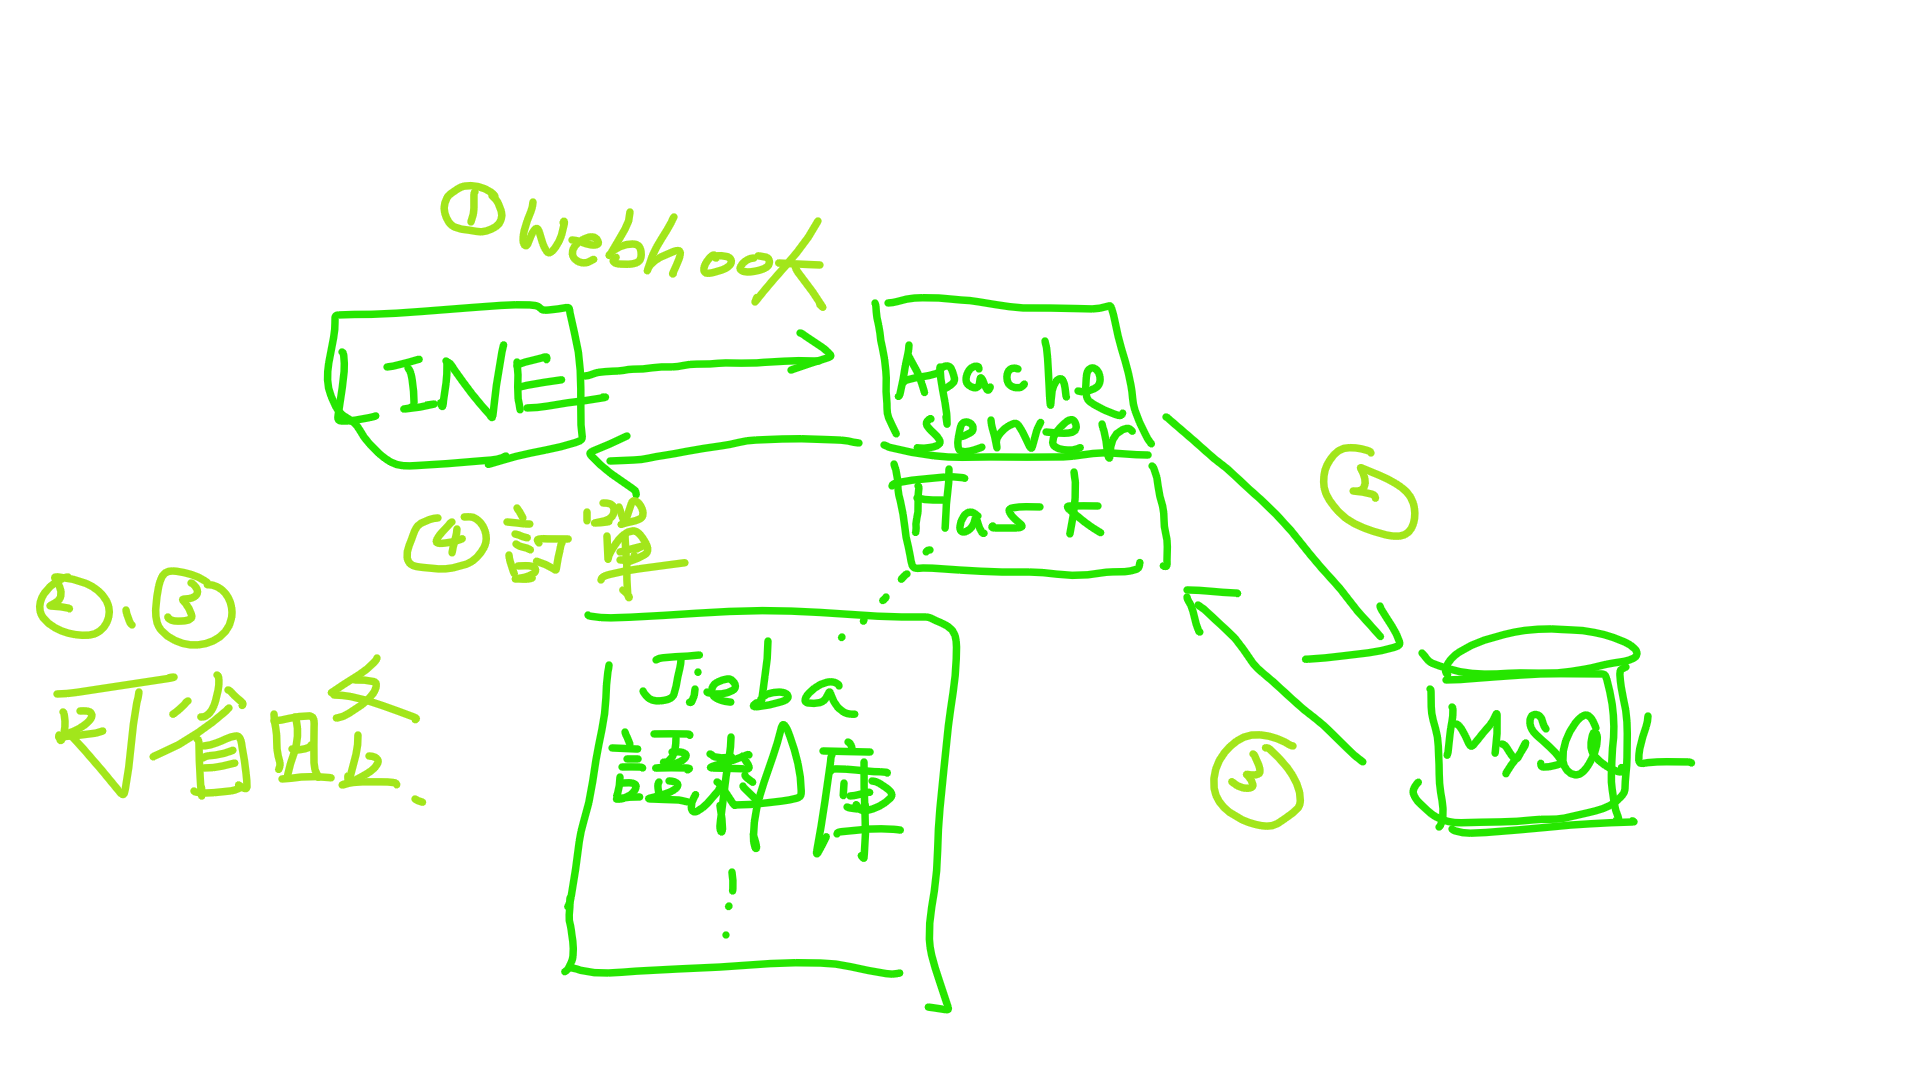 ① Webhook
LINE
Apache
server
Flask
④ 訂單
②、③
可省略
Jieba
語料庫
②
③
MySQL